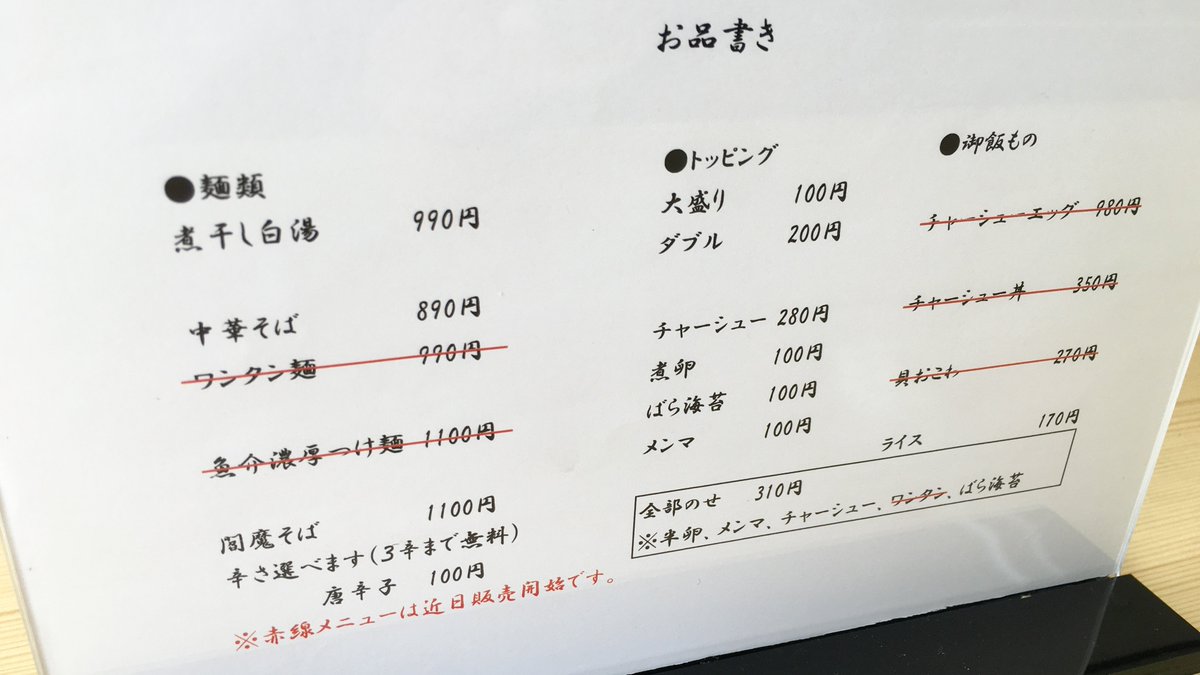 お品書き
●麺類
煮干し白湯 990円
中華そば 890円
ワンタン麺 990円
魚介濃厚つけ麺 1100円
閻魔そば 1100円
辛さ選べます(3辛まで無料)
唐辛子 100円
※赤線メニューは近日販売開始です。
●トッピング
大盛り 100円
ダブル 200円
チャーシュー 280円
煮卵 100円
ばら海苔 100円
メンマ 100円
全部のせ 310円
※半卵、メンマ、チャーシュー、ワンタン、ばら海苔
●御飯もの
チャーシューエッグ 980円
チャーシュー丼 350円
具おこわ 270円
ライス 170円